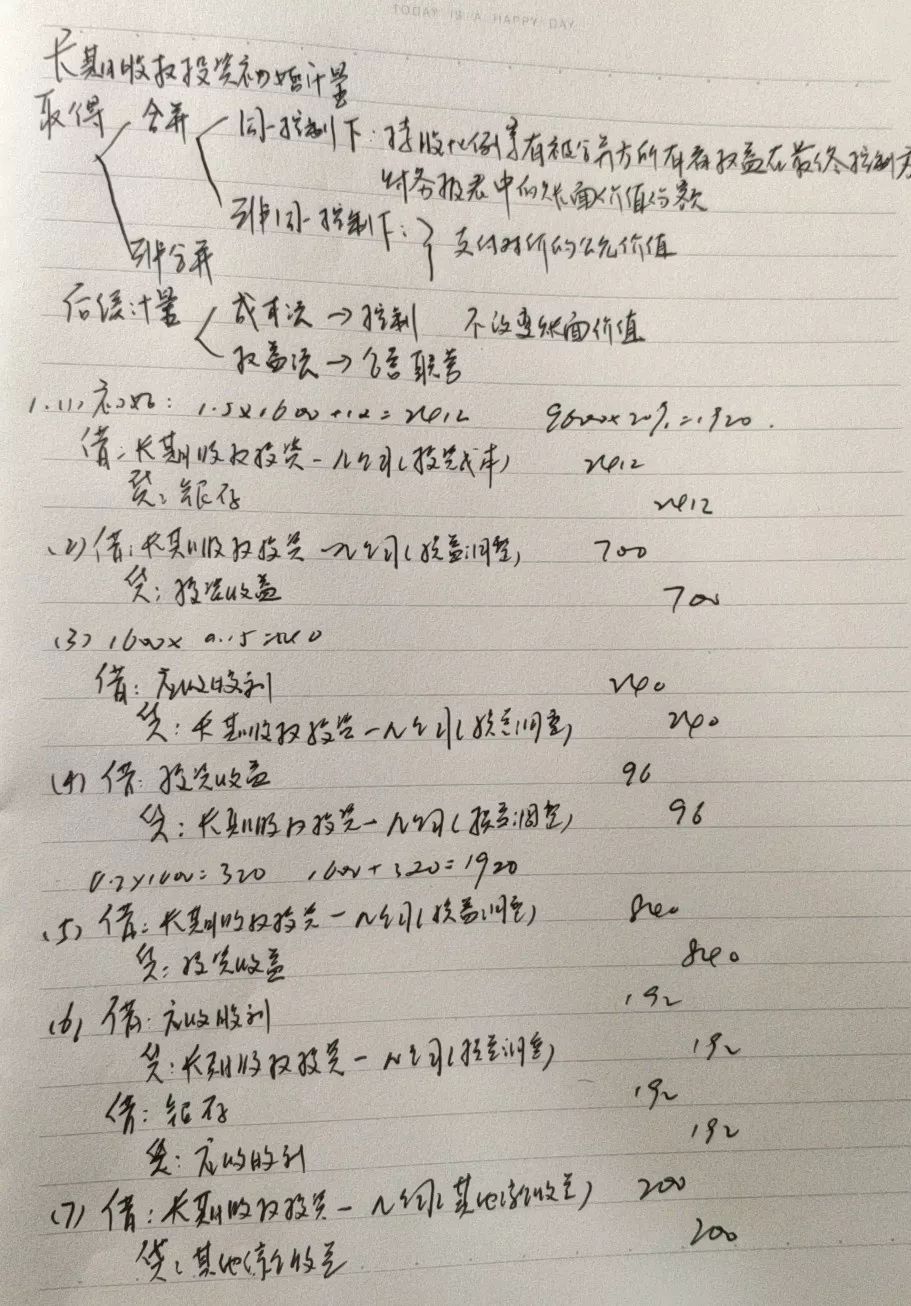 TODAY IS A HAPPY DAY
长期股权投资初始计量
取得 合并 同一控制下：持股比例享有被合并方所有者权益在最终控制方
财务报表中的账面价值份额
非同一控制下：} 支付对价的公允价值
非合并
后续计量 成本法→控制 不改变账面价值
权益法→合营 联营
1.(1) 初始：1.5×1600+12=2412 9600×20%=1920.
借：长期股权投资-N公司(投资成本) 2412
贷：银存 2412
(2)借：长期股权投资-N公司(损益调整) 700
贷：投资收益 700
(3) 1600×0.15=240
借：应收股利 240
贷：长期股权投资-N公司(损益调整) 240
(4) 借：投资收益 96
贷：长期股权投资-N公司(损益调整) 96
0.2×1600=320 1600+320=1920
(5) 借：长期股权投资-N公司(损益调整) 840
贷：投资收益 840
(6) 借：应收股利 192
贷：长期股权投资-N公司(损益调整) 192
借：银存 192
贷：应收股利 192
(7) 借：长期股权投资-N公司(其他综合收益) 200
贷：其他综合收益 200